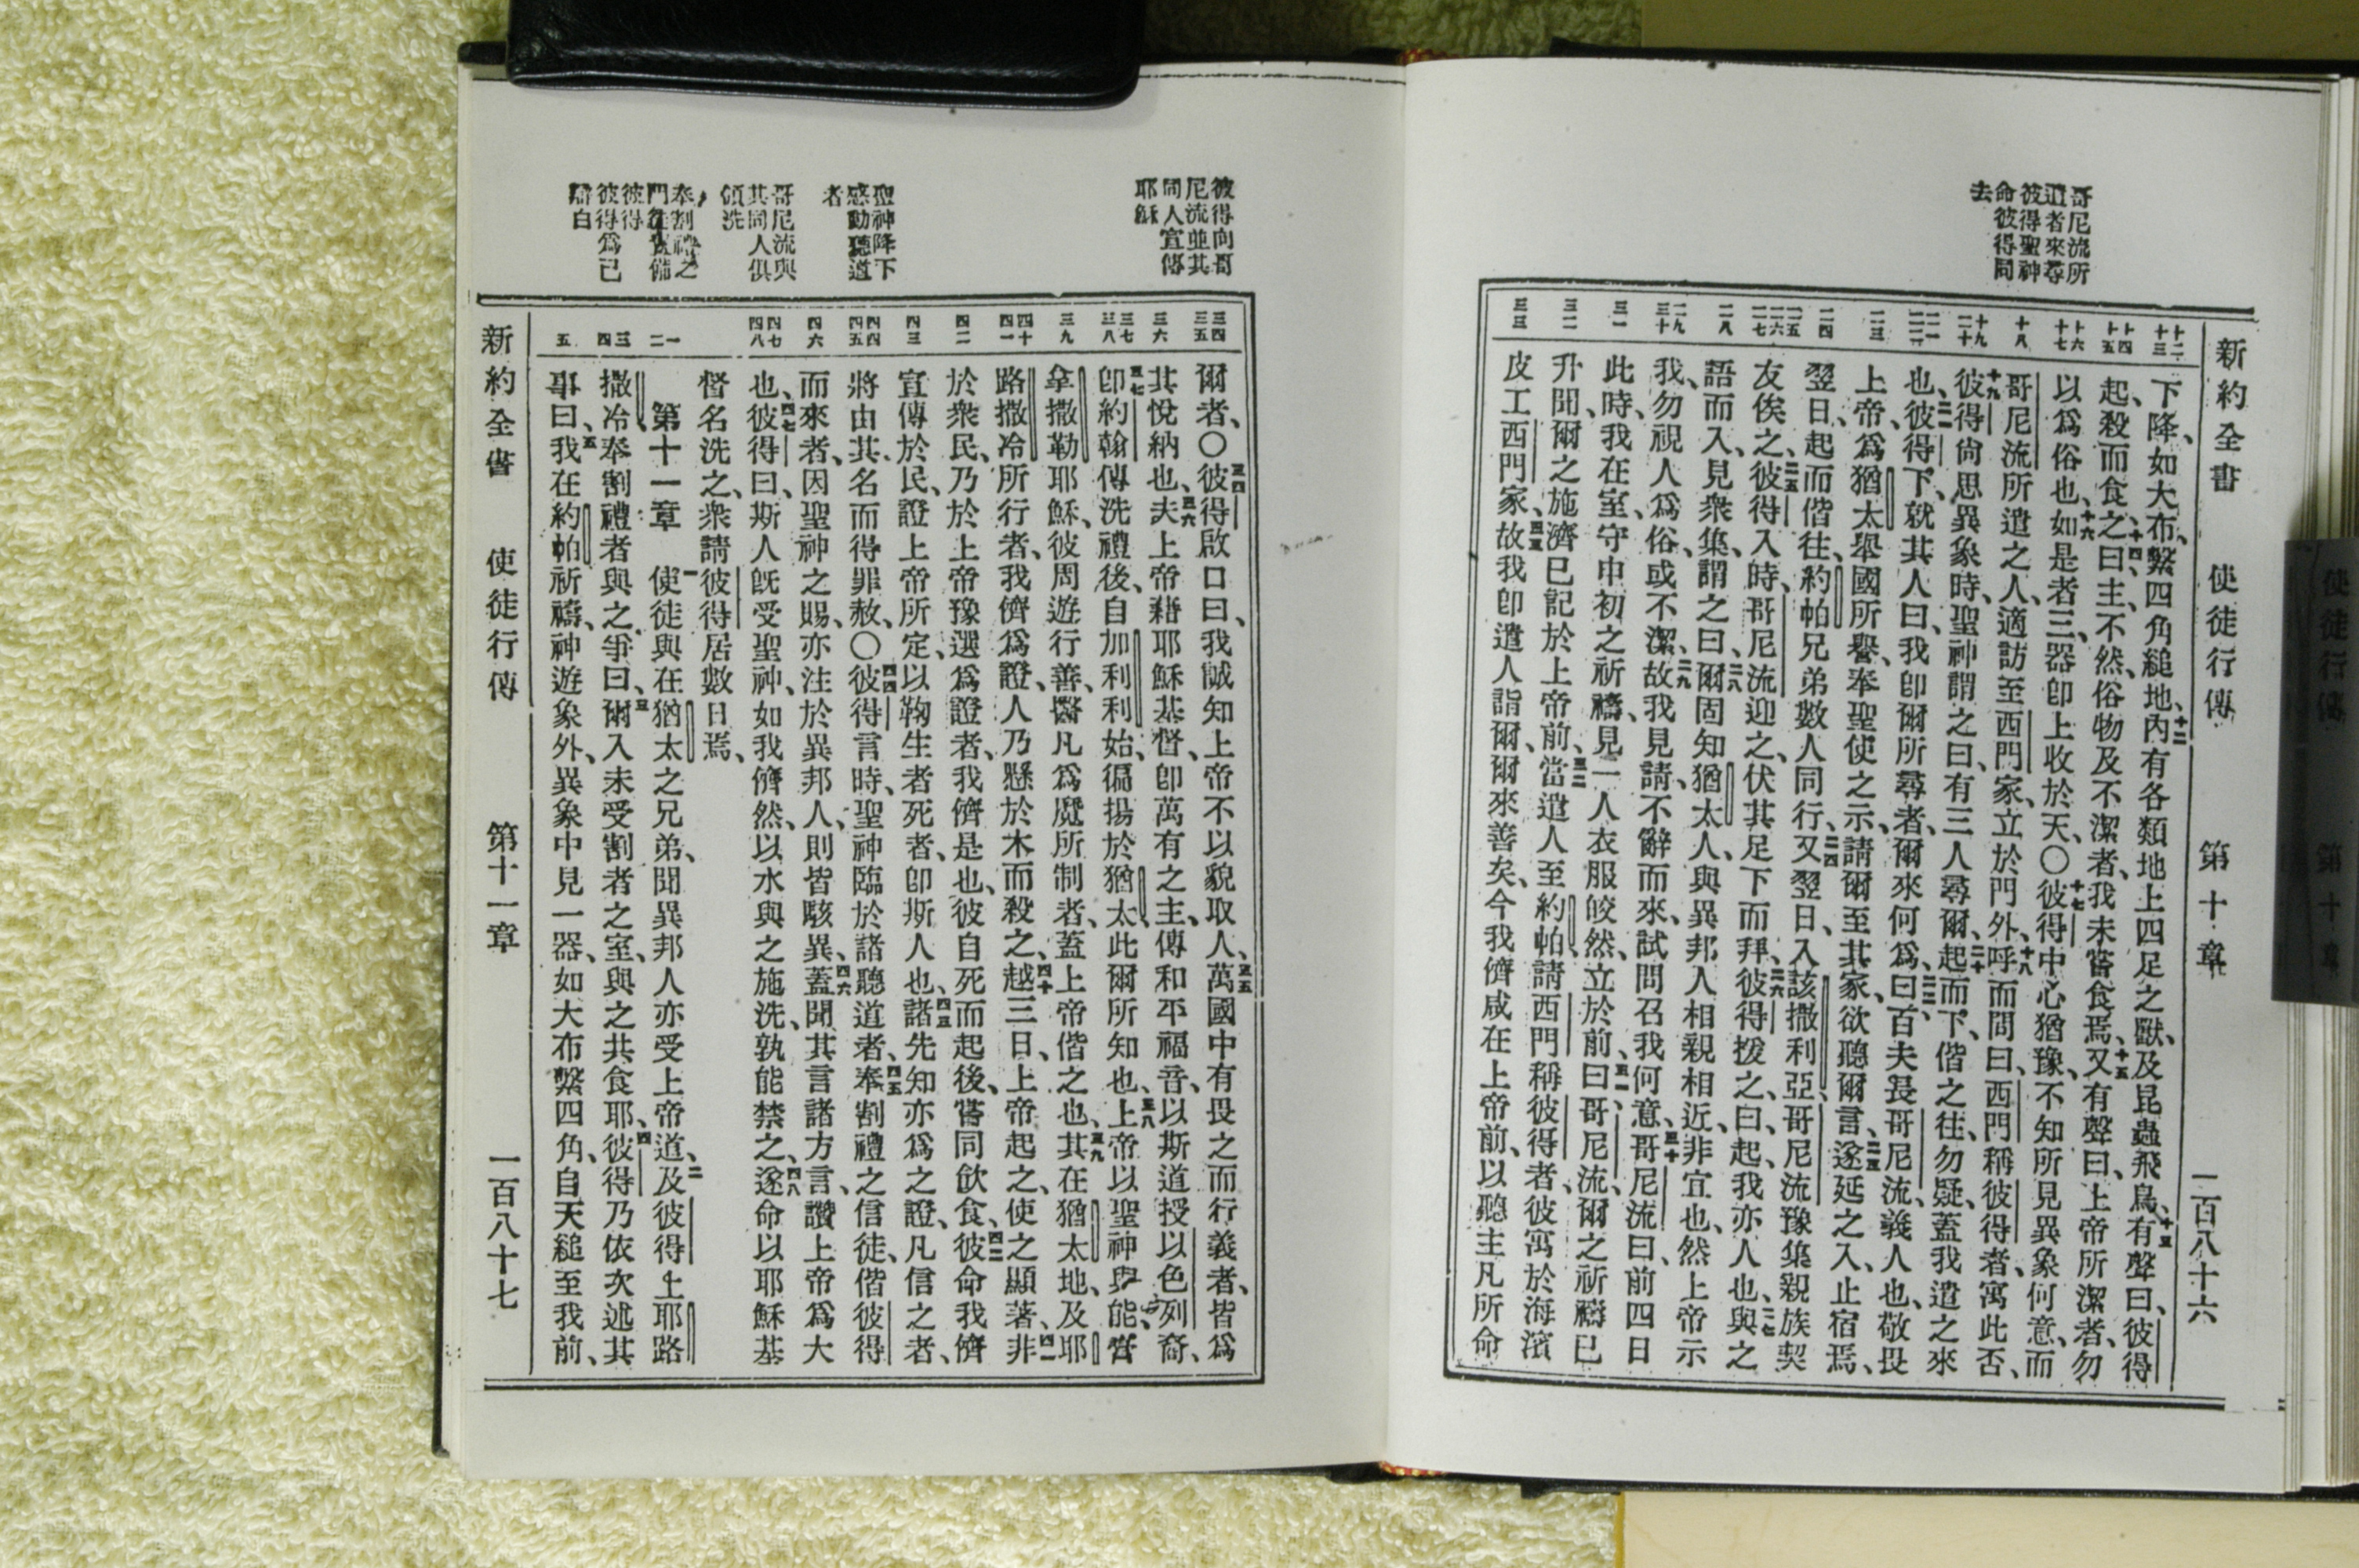 新約全書 使徒行傳 第十章 一百八十六
哥尼流所
遣者來尋
彼得聖神
命彼得同
去
十二 十三
十四 十五
十六 十七
十八
十九 二十
二一 二二
二三
二四
二五 二六 二七
二八
二九 三十
三一
三二
三三
下降、如大布、繫四角縋地、十二內有各類地上四足之獸、及昆蟲飛鳥、十三有聲曰、彼得
起、殺而食之、十四曰、主、不然、俗物及不潔者、我未嘗食焉、十五又有聲曰、上帝所潔者、勿
以爲俗也、十六如是者三、器卽上收於天、〇十七彼得中心猶豫、不知所見異象何意、而
哥尼流所遣之人、適訪至西門家、立於門外、十八呼而問曰、西門稱彼得者、寓此否、
十九彼得尙思異象時、聖神謂之曰、有三人尋爾、二十起而下、偕之往、勿疑、蓋我遣之來
也、二一彼得下、就其人曰、我卽爾所尋者、爾來何爲、二二曰、百夫長哥尼流、義人也、敬畏
上帝、爲猶太舉國所譽、奉聖使之示、請爾至其家、欲聽爾言、二三遂延之入、止宿焉、
翌日、起而偕往、約帕兄弟數人同行、二四又翌日、入該撒利亞、哥尼流豫集親族契
友俟之、二五彼得入時、哥尼流迎之、伏其足下而拜、二六彼得援之曰、起、我亦人也、二七與之
語而入、見衆集、謂之曰、二八爾固知猶太人、與異邦人相親相近、非宜也、然上帝示
我、勿視人爲俗、或不潔、二九故我見請、不辭而來、試問召我何意、三十哥尼流曰、前四日
此時、我在室、守申初之祈禱、見一人衣服皎然、立於前、三一曰、哥尼流、爾之祈禱已
升聞、爾之施濟已記於上帝前、三二當遣人至約帕、請西門稱彼得者、彼寓於海濱
皮工西門家、三三故我卽遣人詣爾、爾來善矣、今我儕咸在上帝前、以聽主凡所命
彼得向哥
尼流並其
同人宣傳
耶穌
聖神降下
感動聽道
者
哥尼流與
其同人俱
領洗
奉割禮之
彼得
彼得爲已
三四 三五
三六
三七 三八
三九
四十 四一
四二
四三
四四 四五
四六
四七 四八
一 二
三 四
五
爾者、〇三四彼得啟口曰、我誠知上帝不以貌取人、三五萬國中有畏之而行義者、皆爲
其悅納也、三六夫上帝藉耶穌基督、卽萬有之主、傳和平福音、以斯道授以色列裔、
三七卽約翰傳洗禮後、自加利利始、徧揚於猶太、此爾所知也、三八上帝以聖神與能、膏
拿撒勒耶穌、彼周遊行善、醫凡爲魔所制者、蓋上帝偕之也、三九其在猶太地、及耶
路撒冷所行者、我儕爲證、人乃懸於木而殺之、四十越三日、上帝起之、使之顯著、四一非
於衆民、乃於上帝豫選爲證者、我儕是也、彼自死而起後、嘗同飲食、四二彼命我儕
宣傳於民、證上帝所定、以鞫生者死者、卽斯人也、四三諸先知亦爲之證、凡信之者、
將由其名而得罪赦、〇四四彼得言時、聖神臨於諸聽道者、四五奉割禮之信徒、偕彼得
而來者、因聖神之賜、亦注於異邦人、則皆駭異、四六蓋聞其言諸方言、讚上帝爲大
也、四七彼得曰、斯人旣受聖神、如我儕然、以水與之施洗、孰能禁之、四八遂命以耶穌基
督名洗之、衆請彼得居數日焉、
第十一章 一使徒與在猶太之兄弟、聞異邦人亦受上帝道、二及彼得上耶路
撒冷、奉割禮者與之爭曰、三爾入未受割者之室、與之共食耶、四彼得乃依次述其
事曰、五我在約帕祈禱、神遊象外、異象中見一器、如大布繫四角、自天縋至我前、
新約全書 使徒行傳 第十一章 一百八十七